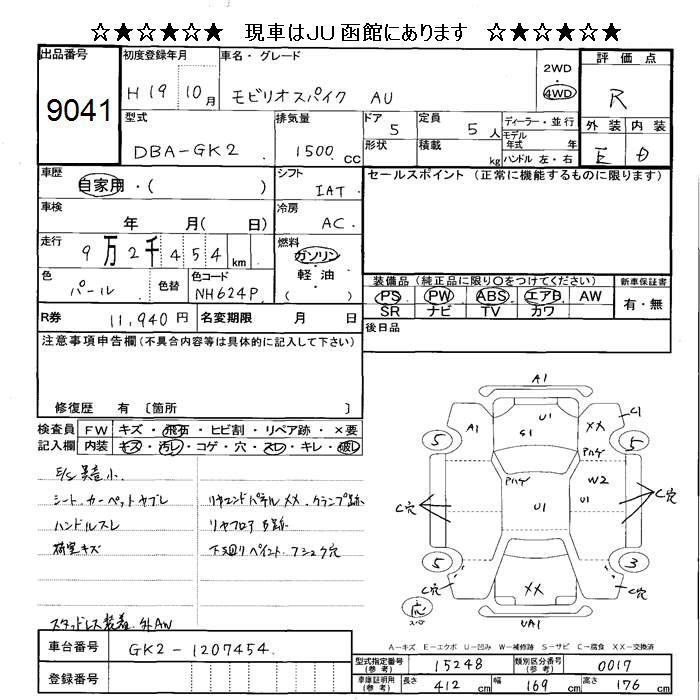 ☆★☆★☆ 現車はJU函館にあります ☆★☆★☆
出品番号 9041
初度登録年月 H19 10月
車名・グレード モビリオスパイク AU
2WD 4WD
評価点 R
外装 E 内装 D
型式 DBA-GK2
排気量 1500 cc
ドア 5 形状
定員 5 人 積載 kg
ディーラー・並行
モデル年式 年
ハンドル 左・右
車歴 自家用・( )
シフト IAT
セールスポイント (正常に機能するものに限ります)
車検 年 月( 日)
冷房 AC
走行 9万2千454 km
燃料 ガソリン・軽油 ( )
色 パール 色替
色コード NH624P
装備品 (純正品に限り○をつけてください)
新車保証書 有・無
PS PW ABS エアB AW
SR ナビ TV カワ
R券 11,940円 名変期限 月 日
後日品
注意事項申告欄 (不具合内容等は具体的に記入して下さい)
修復歴 有 〔箇所 〕
検査員記入欄
FW キズ・飛石・ヒビ割・リペア跡・×要
内装 キズ・汚レ・コゲ・穴・スレ・キレ・破レ
E/S異音小
シート、カーペットヤブレ
ハンドルスレ
荷室キズ
スタッドレス装着、外AW
リヤエンドパネルXX、クランプ跡
下廻りペイント、フショク穴
A1
U1
S1
A1
XX
5
5
Pハゲ
Pハゲ
W2
U1
U1
C穴
C穴
5
3
C穴
C穴
XX
応
UA1
A-キズ E-エクボ U-凹み W-補修跡 S-サビ C-腐食 XX-交換済
車台番号 GK2-1207454
登録番号
型式指定番号 (参考) 15248
類別区分番号 (参考) 0017
車庫証明用 (参考) 長さ 412 cm 幅 169 cm 高さ 176 cm